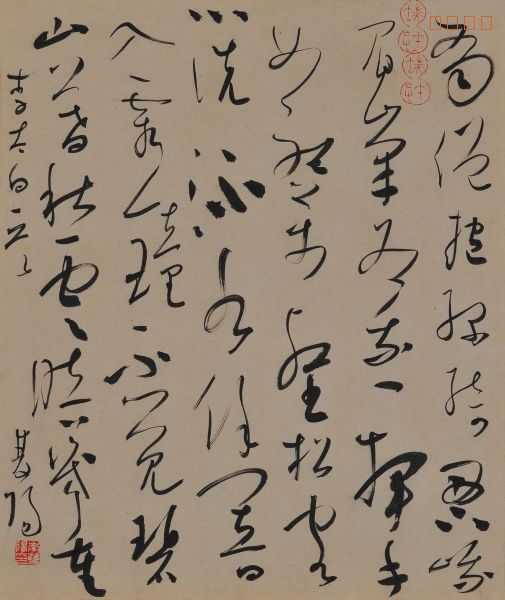 蜀僧抱綠綺西下峨
眉峯為我一揮手
如聽萬壑松客
心洗流水餘響
入霜鐘不覺碧
山暮秋雲暗幾重
李太白